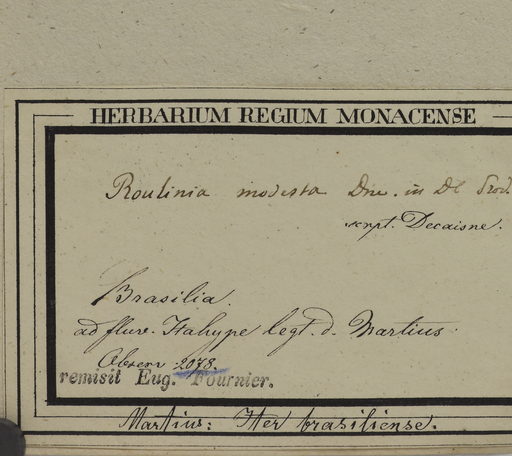 HERBARIUM REGIUM MONACENSE
Roulinia modesta Dne. in DC Prod.
script. Decaisne.
Brasilia.
ad fluv. Itahype legt. d. Martius.
Observ 2078.
remisit Eug. Fournier.
Martius: Iter brasiliense.